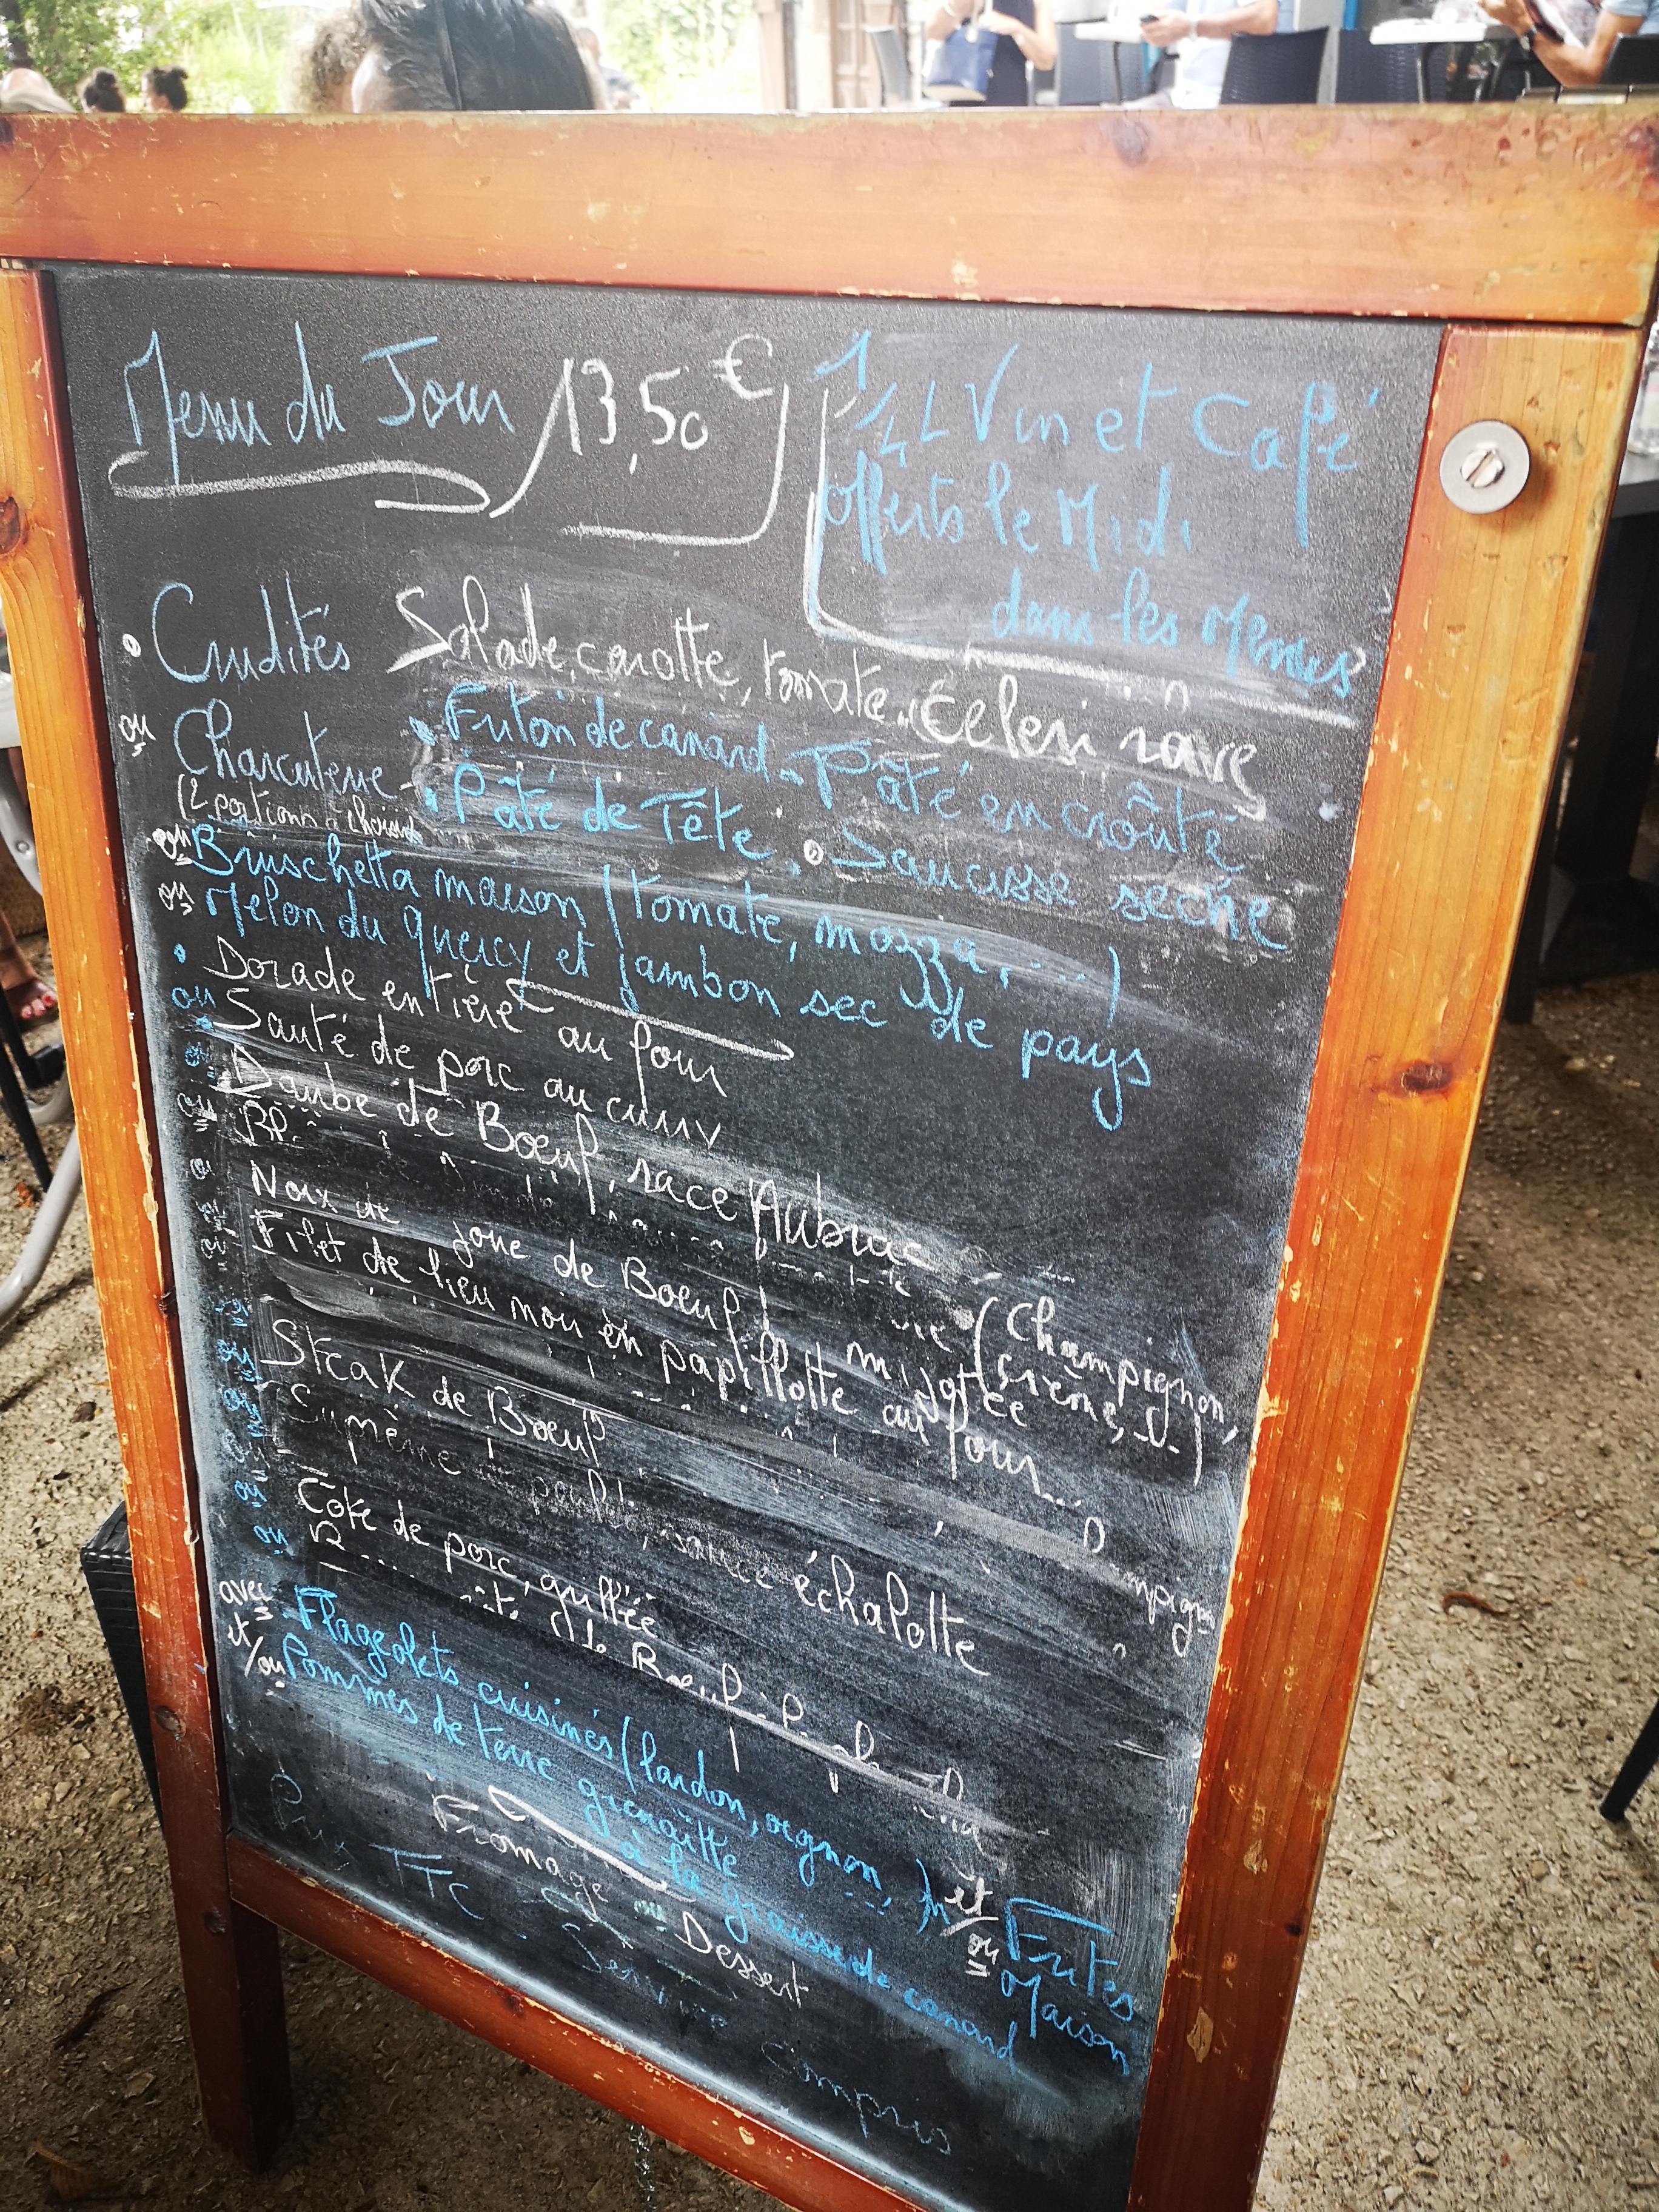 Menu du Jour 13,50 €
1/4 L Vin et Café
offerts le Midi
dans les Menus
• Crudités Salade, carotte, tomate, Céleri rave
ou Charcuterie - • Friton de canard - Pâté en croûte
(2 portions à choisir) • Pâté de Tête, • Saucisse sèche
ou Bruschetta maison (tomate, mozza, ...)
ou Melon du quercy et jambon sec de pays
• Dorade entière au four
ou Sauté de porc au curry
ou Daube de Boeuf, race Aubrac
ou
ou Noix de joue de Boeuf mijotée (Champignon, crème, ...)
ou Filet de lieu noir en papillotte au four
ou Steak de Boeuf
ou Suprème sauce échalotte
ou Côte de porc, grillée
ou Boeuf
avec Flageolets cuisinés (lardon, oignon, ..) et/ou Frites Maison
et/ou Pommes de terre grenaille à la graisse de canard
Fromage ou Dessert
Prix TTC - Service Compris